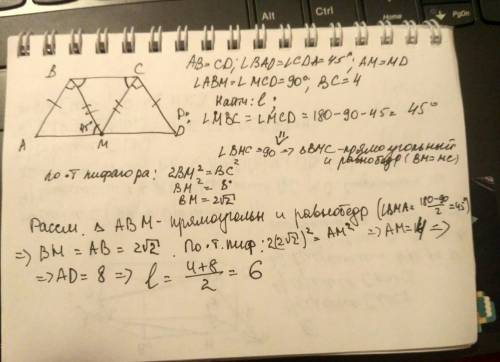 Alt
Ctrl
Home
PgDn
B
C
A
M
D
45°
AB=CD; ∠BAD=∠CDA=45°; AM=MD
∠ABM=∠MCD=90°, BC=4
Найти: l
∠MBC=∠MCD=180-90-45=45°
∠BMC=90 => ΔBMC-прямоугольный
и равнобедр (BM=MC)
по.т пифагора: 2BM²=BC²
BM²=8
BM=2√2
Рассм. Δ ABM-прямоугольн и равнобедр (∠BMA=(180-90)/2=45°)
=> BM=AB=2√2. По.т.пиф: 2(2√2)²=AM² => AM=4 =>
=> AD=8 => l=(4+8)/2=6